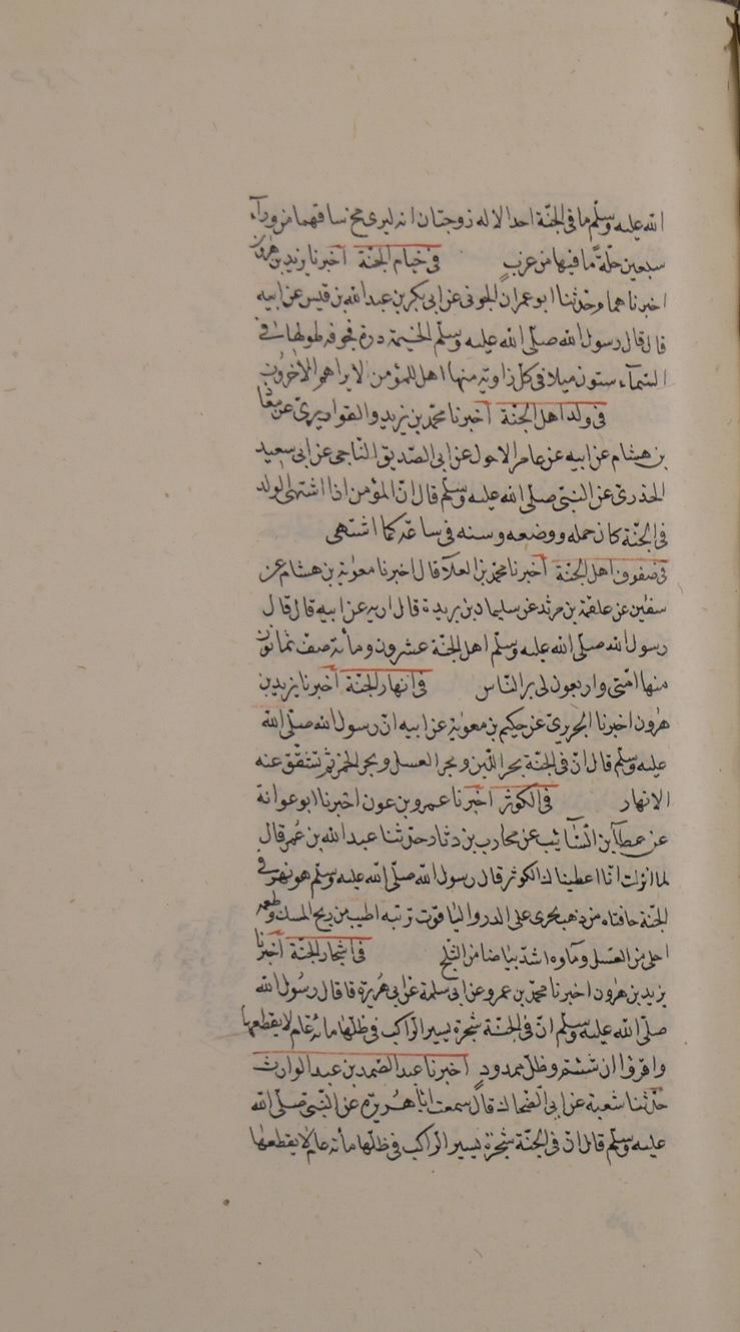 الله عليه وسلّم ما فى الجنّة احد الا له زوجتان انه ليرى مخ ساقهما من ورآء
سبعين حلّة ما فيها من عزب فى خيام الجنّة اخبرنا يزيد بن هرون
اخبرنا همام وحدّثنا ابو عمران الجونى عن ابى بكر بن عبد الله بن قيس عن ابيه
قال قال رسول الله صلّى الله عليه وسلّم الخيمة درة مجوفه طولها فى
السّمآء ستون ميلا فى كل زاوية منها اهل للمؤمن لا يراهم الاخرون
فى ولد اهل الجنّة اخبرنا محمّد بن يزيد والقواريرىّ عن معاذ
بن هشام عن ابيه عن عامر الاحول عن ابى الصّديق النّاجى عن ابى سعيد
الخدرىّ عن النبىّ صلى الله عليه وسلّم قال انّ المؤمن اذا اشتهى الولد
فى الجنّة كان حمله ووضعه وسنه فى ساعة كما اشتهى
فى صفوف اهل الجنّة اخبرنا محمد بن العلآ قال اخبرنا معوية بن هشام عن
سفين عن علقمة بن مرثد عن سليمان بن بريدة قال اريه عن ابيه قال قال
رسول الله صلّى الله عليه وسلّم اهل الجنّة عشرون ومأة صف ثمانون
منها امّتى واربعون سائر النّاس فى انهار الجنّة اخبرنا يزيد بن
هرون اخبرنا الجريرىّ عن حكيم بن معوية عن ابيه ان رسول الله صلّى الله
عليه وسلّم قال انّ فى الجنّة بحر اللّبن وبحر العسل وبحر الخمر ثم تشقّق عنه
الانهار فى الكوثر اخبرنا عمرو بن عون اخبرنا ابو عوانة
عن عطآ بن السّآئب عن محارب بن دثار حدّثنا عبد الله بن عمر قال
لما انزلت انّا اعطيناك الكوثر قال رسول الله صلّى الله عليه وسلّم هو نهر فى
الجنّة حافتاه من ذهب يجرى على الدر والياقوت تربته اطيب من ريح المسك وطعمه
احلى من العسل ومآوه اشدّ بياضا من الثّلج فى اشجار الجنّة اخبرنا
يزيد بن هرون اخبرنا محمّد بن عمرو عن ابى سلمة عن ابى هُريرة قا قال رسُول الله
صلّى الله عليه وسلّم انّ فى الجنّة شجرة يسير الرّاكب فى ظلّها مأة عام لا يقطعها
واقرؤا ان شئتم وظلّ ممدود اخبرنا عبد الصّمد بن عبد الوارث
حدّثنا شعبة عن ابى الضّحاك قال سمعت ابا هُريرة عن النّبىّ صلّى الله
عليه وسلّم قال انّ فى الجنّة شجرة يسير الرّاكب فى ظلّها مأة عام لا يقطعها